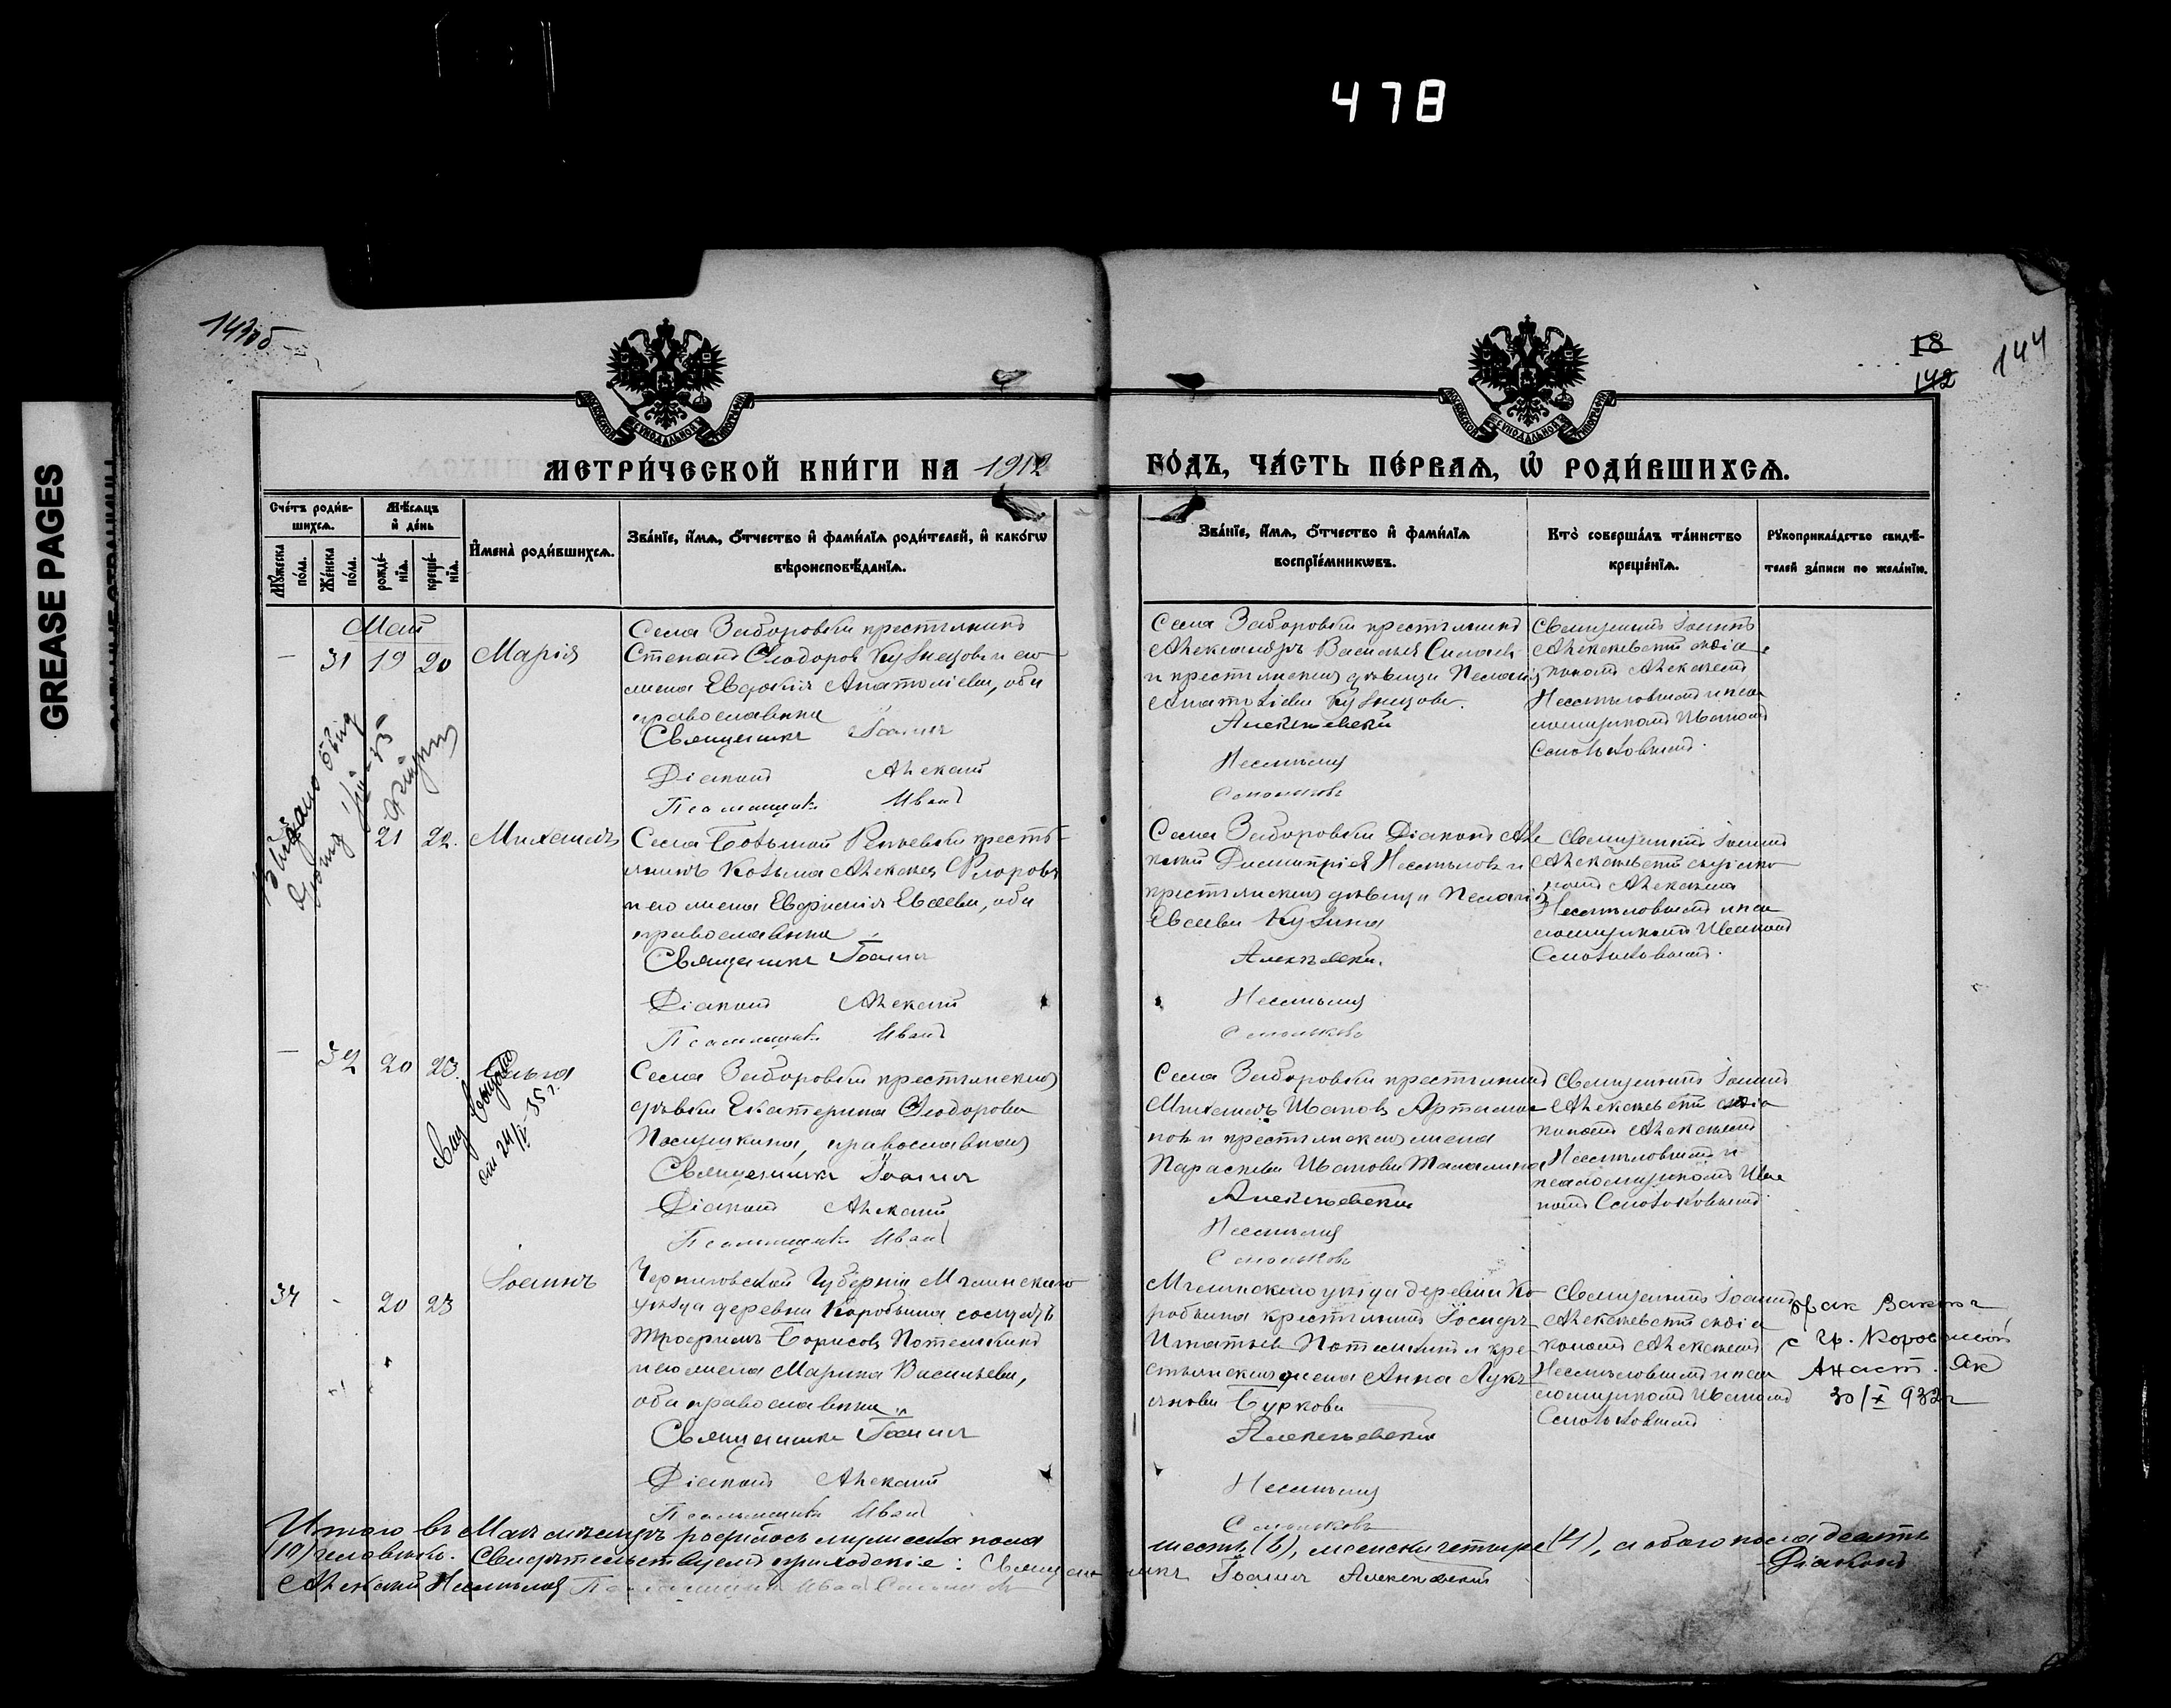 478
GREASE PAGES
143об
18
142
144
МЕТРИ́ЧЕСКОЙ КНИ́ГИ НА 1912
ГО́ДЪ, ЧА́СТЬ ПЕ́РВАѦ, Ѡ҆ РОДИ́ВШИХСѦ.
Сче́тъ роди́в-
шихсѧ.
Мѣ́сѧцъ
и҆ де́нь
Мꙋ́жеска по́ла.
Же́нска по́ла.
рожде́-нїѧ.
креще́-нїѧ.
И҆мена̀ роди́вшихсѧ.
Зва́нїе, и҆́мѧ, ѻ҆́тчество и҆ фами́лїѧ роди́телей, и҆ како́гѡ
вѣроисповѣ́данїѧ.
Зва́нїе, и҆́мѧ, ѻ҆́тчество и҆ фами́лїѧ
воспрїе́мникѡвъ.
Кто̀ соверша́лъ та́инство
креще́нїѧ.
Рꙋкоприкла́дство свидѣ́-
телей за́писи по жела́нїю.
Май
— 31 19 20 Марія
Села Заборовки крестьянинъ
Степанъ Ѳеодоровъ Кузнецовъ и его
жена Евдокія Анатоліева, оба
православные
Священникъ Іоаннъ
Діаконъ Алексій
Псаломщикъ Иванъ
Села Заборовки крестьянинъ
Александръ Васильевъ
и крестьянская дѣвица Пелагія
Анатоліева Кузнецова.
Алексѣевскій
Несмѣловъ
Смольковъ
Священникъ Іоаннъ
Алексѣевскій съ діа-
кономъ Алексѣемъ
Несмѣловымъ и пса-
ломщикомъ Иваномъ
Смольковымъ.
21 22. Михаилъ
Села Большой Репьевки кресть-
янинъ Козьма Алексѣевъ
и его жена Евфимія Евсеева, оба
православные
Священникъ Іоаннъ
Діаконъ Алексій
Псаломщикъ Иванъ
Села Заборовки Діаконъ Але-
ксій Димитріевъ Несмѣловъ и
крестьянская дѣвица Пелагія
Евсеева Кузина
Алексѣевскій.
Несмѣловъ
Смольковъ
Священникъ Іоаннъ
Алексѣевскій съ діако-
номъ Алексѣемъ
Несмѣловымъ и пса-
ломщикомъ Иваномъ
Смольковымъ.
— 32 20 23. Ольга
от 24/ 35 г.
Села Заборовки крестьянская
дѣвка Екатерина Ѳеодорова
православная
Священникъ Іоаннъ
Діаконъ Алексій
Псаломщикъ Иванъ
Села Заборовки крестьянинъ
Михаилъ Ивановъ Артамо-
новъ и крестьянская жена
Параскева Иванова
Алексѣевскій
Несмѣловъ
Смольковъ
Священникъ Іоаннъ
Алексѣевскій съ діа-
кономъ Алексѣемъ
Несмѣловымъ и
псаломщикомъ Ива-
номъ Смольковымъ.
34 - 20 23 Іоаннъ
Черниговской Губерніи Мглинскаго
уѣзда деревни Коробьина
Трофимъ Борисовъ Потемкинъ
и его жена Марина Васильева,
оба православные
Священникъ Іоаннъ
Діаконъ Алексій
Псаломщикъ Иванъ
Мглинскаго уѣзда деревни Ко-
робьина крестьянинъ
Игнатьевъ Потемкинъ и кре-
стьянская жена Анна Лукь-
янова Буркова
Алексѣевскій
Несмѣловъ
Смольковъ
Священникъ Іоаннъ
Алексѣевскій съ діа-
кономъ Алексѣемъ
Несмѣловымъ и пса-
ломщикомъ Иваномъ
Смольковымъ
брак заключ
с гр.
Анаст. Як
30/X 932 г
Итого въ Маѣ мѣсяцѣ родилось мужеска пола
шесть (6), женска четыре (4), а обоего пола десять
(10) человѣкъ. Свидѣтельствуемъ приходскіе: Священникъ Іоаннъ Алексѣевскій Діаконъ
Алексій Несмѣловъ Псаломщикъ Иванъ Смольковъ